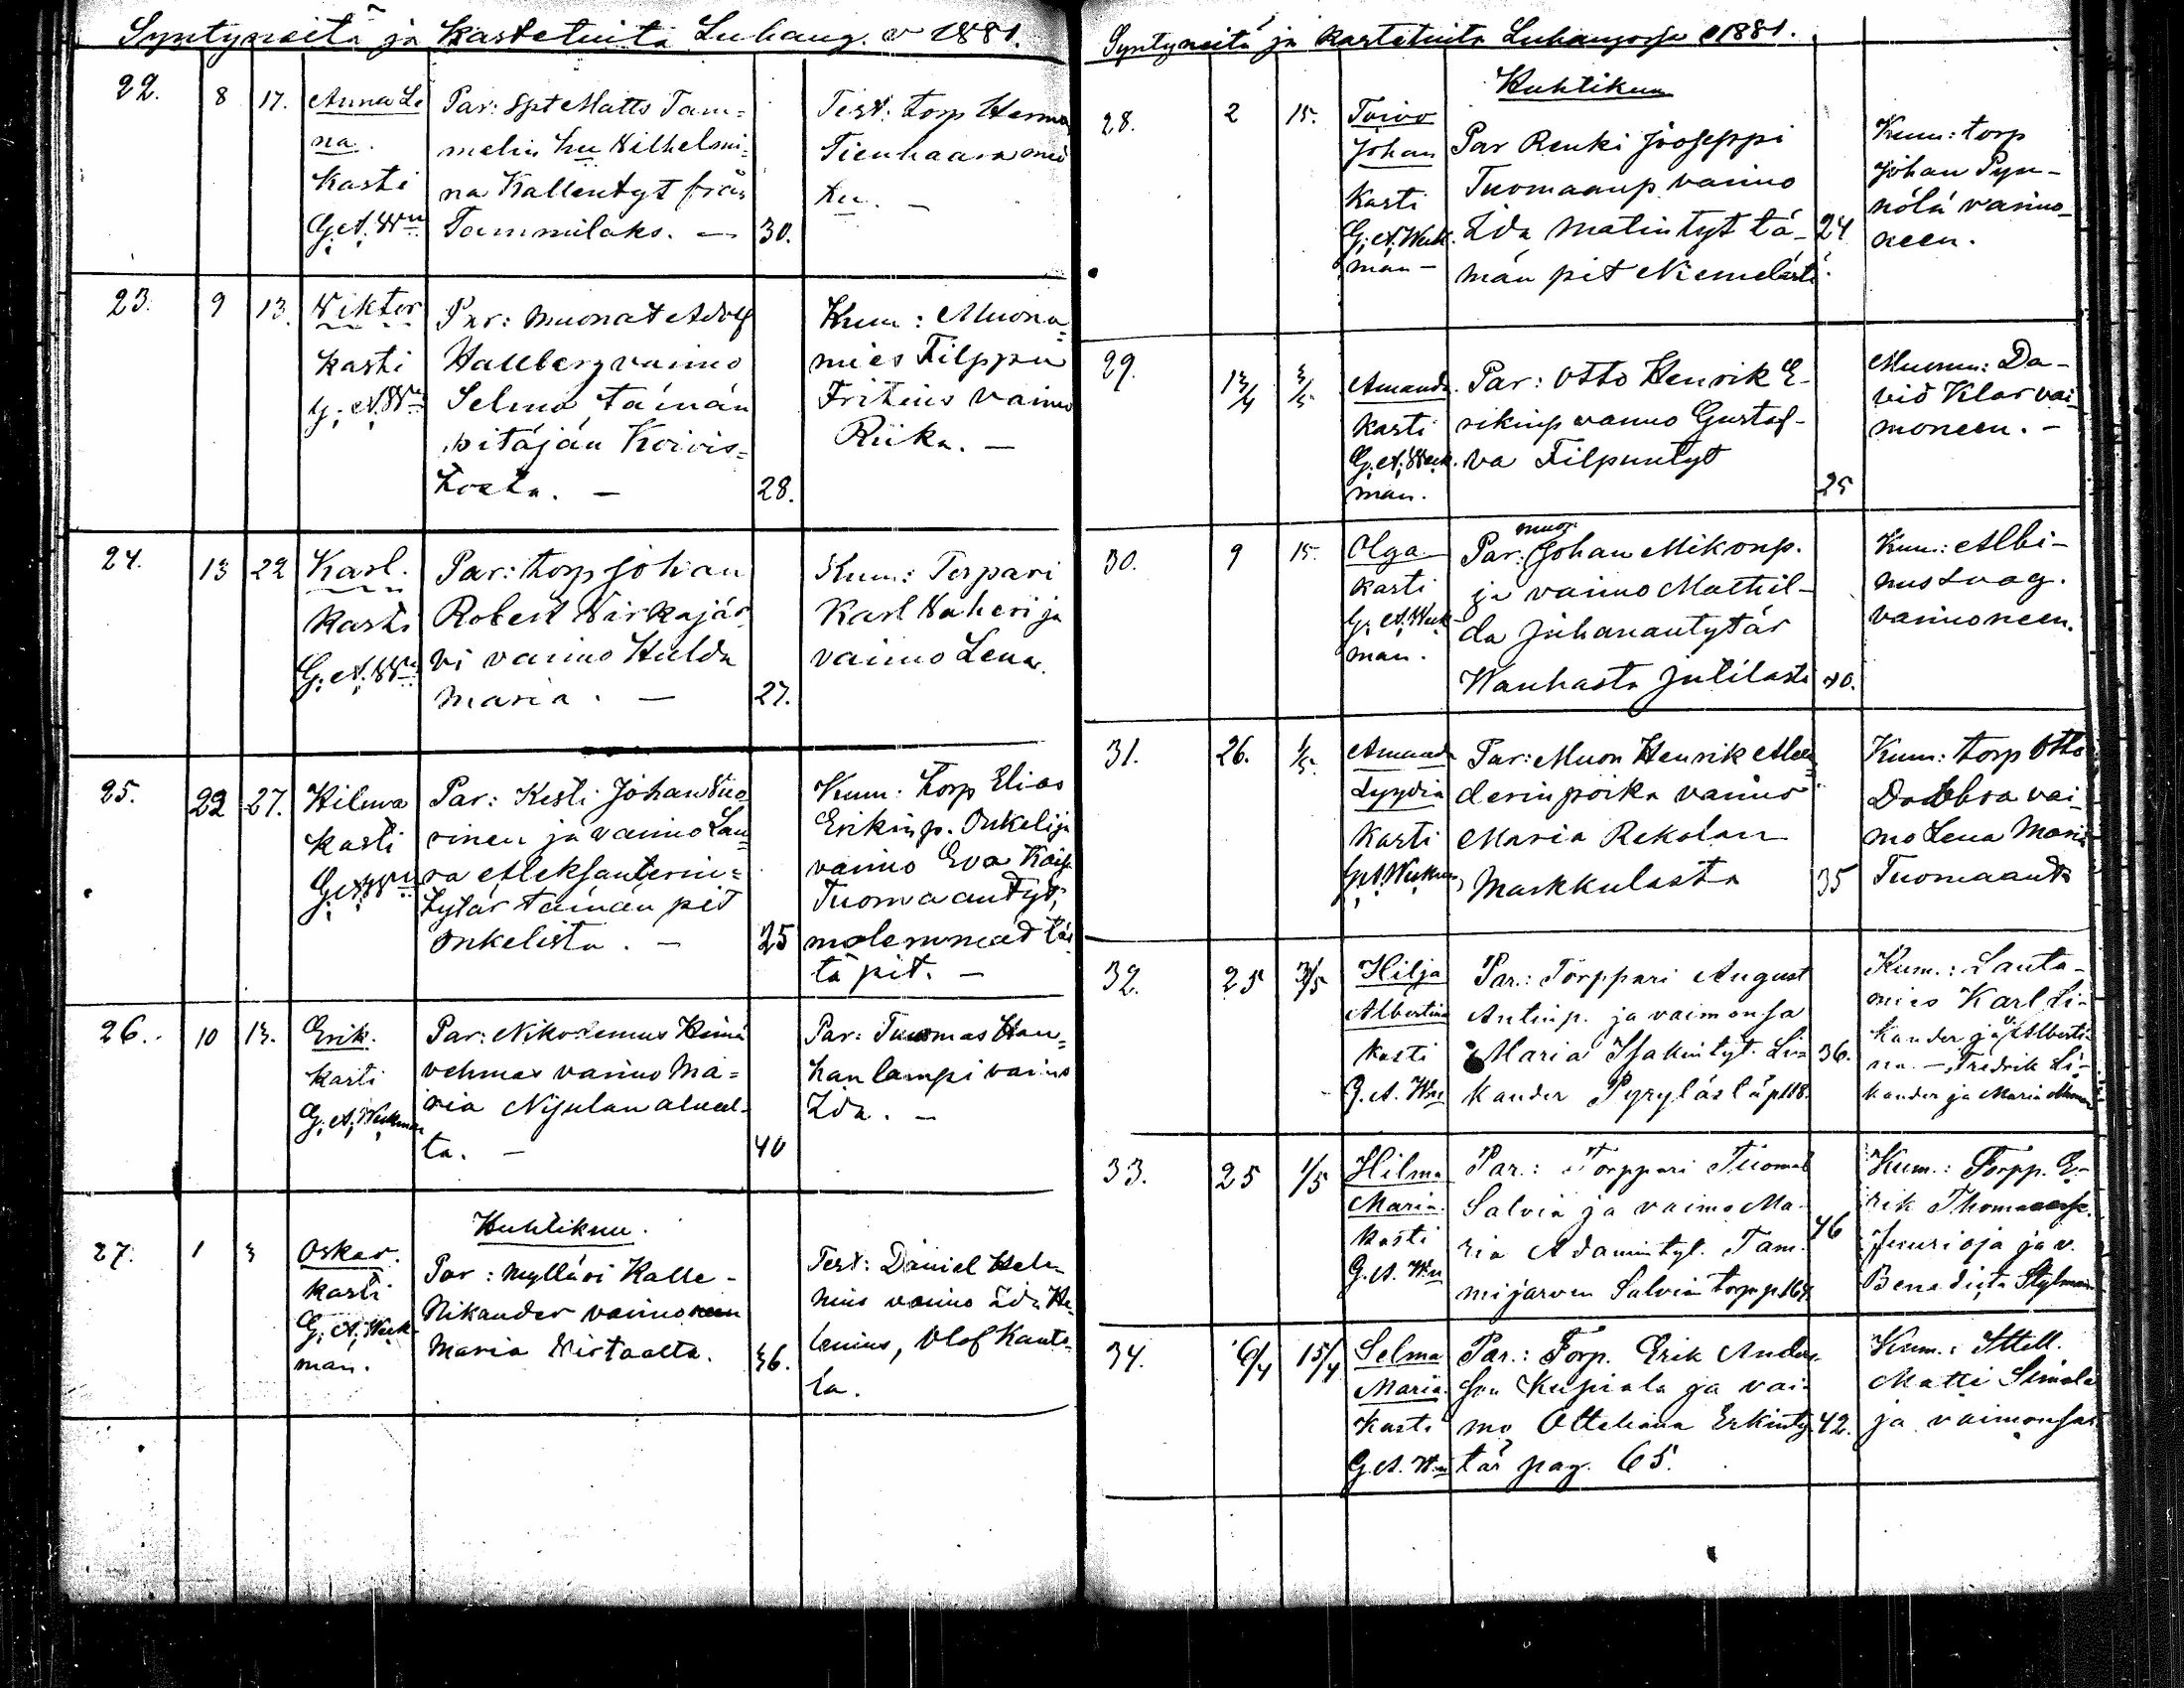 Syntyneitä ja Kastetuita Luhang. v 1881.
22. 8 17.
Anna Le
na.
Kasti
G. A. W:n
Par: Spt Matts Tam=
melin hu Wilhelmi=
na Kallentyt från
Tammilaks. — 30.
Test: torp Herma
Tienhaara med
hu. —
23. 9 13.
Viktor
kasti
G. A. W:n
Par: Muonat Adolf
Hallberg vaimo
Selma tämän
pitäjän Koivis=
tosta. — 28.
Kum: Muona=
mies Filppu
Fritius vaimo
Riika. —
24. 13 22
Karl.
Kasti
G. A. W:n
Par: torp Johan
Robert Virkajär
vi vaimo Hulda
Maria. — 27.
Kum: Torpari
Karl Vaheri ja
vaimo Lena.
25. 22 27.
Hilma
kasti
G. A. W:n
Par: Kesti Johan Vuo
rinen ja vaimo Lau=
ra Aleksanterin=
tytär tämän pit
Onkelista. — 25
Kum: torp Elias
Erikinp. Onkeli ja
vaimo Eva Kaisa
Tuomaantyt,
molemmat täs
tä pit. —
26. 10 13.
Erik.
kasti
G. A. Weckman
Par: Nikodemus Heinä
vehmas vaimo Ma=
ria Nisulan aluel=
ta. — 40
Par: Tuomas Hau=
hanlampi vaimo
Ida. —
Huhtikuu.
27. 1 3
Oskar.
kasti
G. A. Weck-
man.
Par: Mylläri Kalle-
Nikander vaimoneen
Maria Virtaalta. 36.
Test: Daniel Hele-
nius vaimo Ida He-
lenius, Olof Kanto-
la.
Syntyneitä ja kastetuita Luhangossa v 1881.
Huhtikuu
28. 2 15.
Toivo
Johan
Kasti
G. A. Weck-
man —
Par Renki Jooseppi
Tuomaanp. vaimo
Ida Matintyt tä- 24
män pit Niemelästä.
Kum: torp
Johan Pyn-
nölä vaimo-
neen.
29. 13/4 3/5
Amanda.
Kasti
G. A. Weck-
man.
Par: Otto Henrik E-
rikinp vaimo Gustaf-
va Filpuntyt 25
Muonm: Da-
vid Klar vai-
moneen. —
30. 9 15.
Olga
kasti
G. A. Weck-
man.
muon
Par: Johan Mikonp.
ja vaimo Mathil-
da Juhanantytär
Wanhasta Jutilasta 40.
Kum: Albi-
nus Skog.
vaimoneen.
31. 26. 1/5.
Amanda
Lyydia
Kasti
G. A. Weckman
Par: Muon Henrik Alek
derinpoika vaimo
Maria Rekolan
Markkulasta 35
Kum: torp Otto
vai
mo Lena Maria
Tuomaant
32. 25 3/5
Hilja
Albertina
Kasti
G. A. W:n
Par: Torppari August
Antinp. ja vaimonsa
Maria Isakintyt. Li= 36.
kander Pyrylästä p 118.
Kum.: Lauta-
mies Karl Li-
kander ja v. Alberti-
na. — Fredrik Li-
kander ja Maria
33. 25 1/5
Hilma
Maria.
Kasti
G. A. W:n
Par.: Torppari Tuomas
Salvia ja vaimo Ma-
ria Adamintyt. Tam- 46
mijärven Salvia torp p 167.
Kum.: Torpp. E-
rik Thomaanp.
Juurioja ja v.
Benedicta Stylman
34. 6/4 15/4
Selma
Maria.
Kasti
G. A. W:n
Par.: Torp. Erik Anders-
son Kupiala ja vai-
mo Otteliana Erkinty- 42.
tär pag. 65.
Kum.: Ittell.
Matti Simola
ja vaimonsa